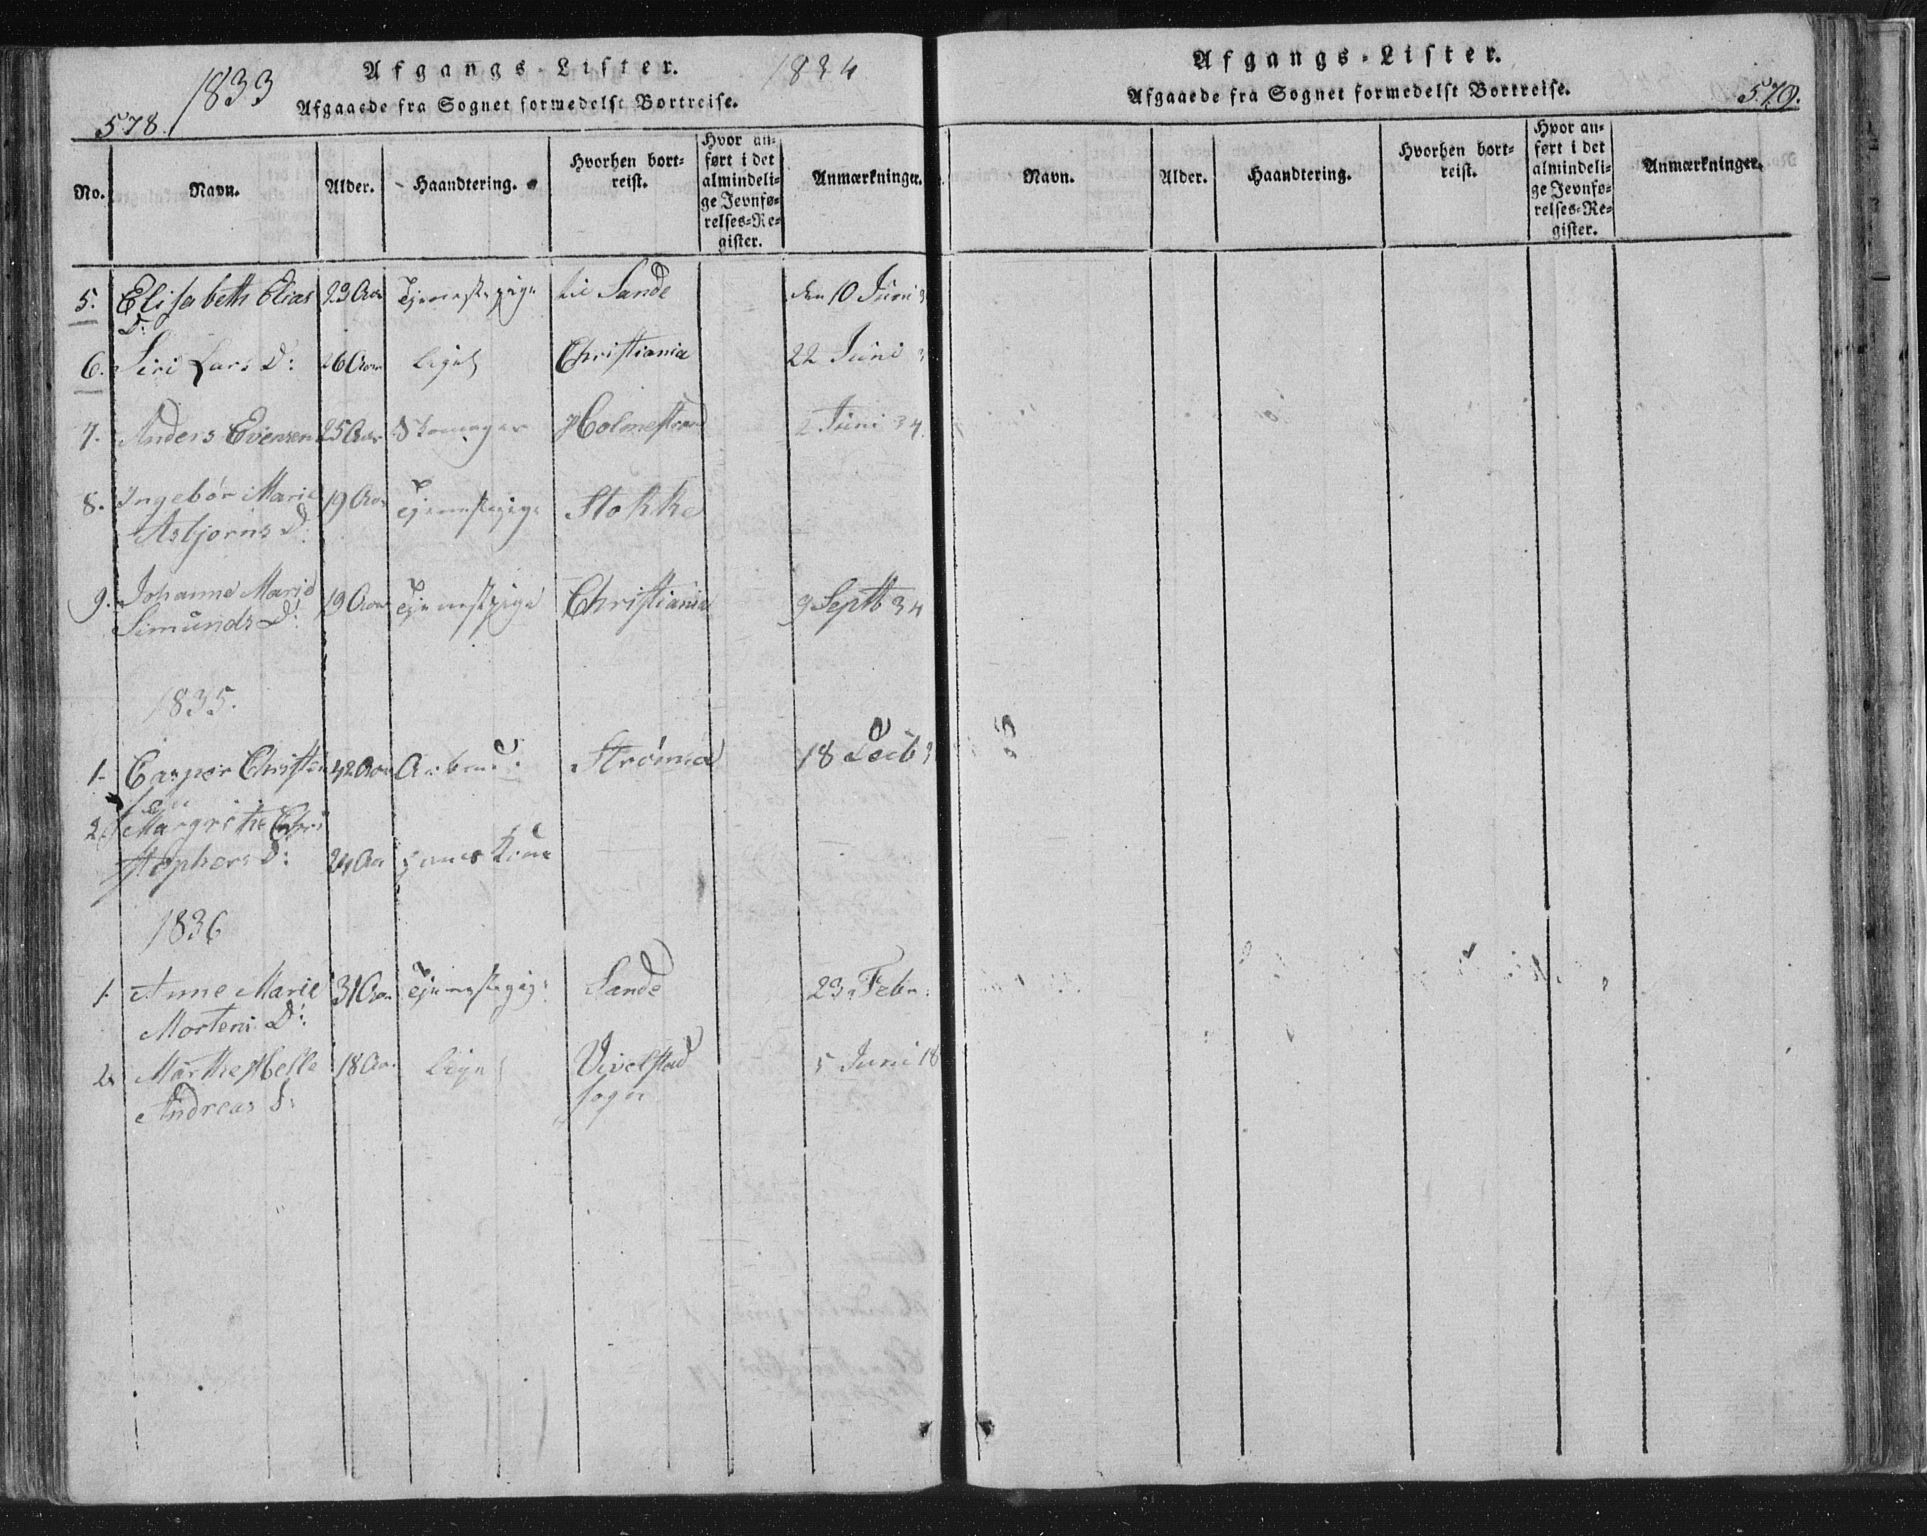 1833
Afgangs-Lister.
1834
578.
Afgaaede fra Sognet formedelst Bortreise.
No. Navn. Alder. Haandtering. Hvorhen bortreist. Hvor anført i det almindelige Jevnførelses-Register. Anmærkninger.
5. Elisabeth Elias 23 Aar Tjenestepige til Sande den 10 Juni
D:
6. Siri Lars D: 26 Aar ligel Christiania 22 Juni
7. Anders Evensen 25 Aar Skomager Holmestrand 2 Juni 34
8. Ingebôr Marie 19 Aar Tjenestepige Stokke
Asbjørns D:
9. Johanne Marie 19 Aar Tjenestpige Christiania 9 Septb 34
Simunds D:
1835.
1. Casper Christen 42 Aar Strømmø 18
2. Margrethe Chri
stophers D: 24 Aar Kone
1836
1. Anne Marie 31 Aar Tjenestepige Sande 23 Febr.
Mortens D:
2. Marthe Helle 18 Aar Lige Vivelstad 5 Juni 18
Andreas D: sogn
Afgangs-Lister.
Afgaaede fra Sognet formedelst Bortreise.
579.
Navn. Alder. Haandtering. Hvorhen bortreist. Hvor anført i det almindelige Jevnførelses-Register. Anmærkninger.
35